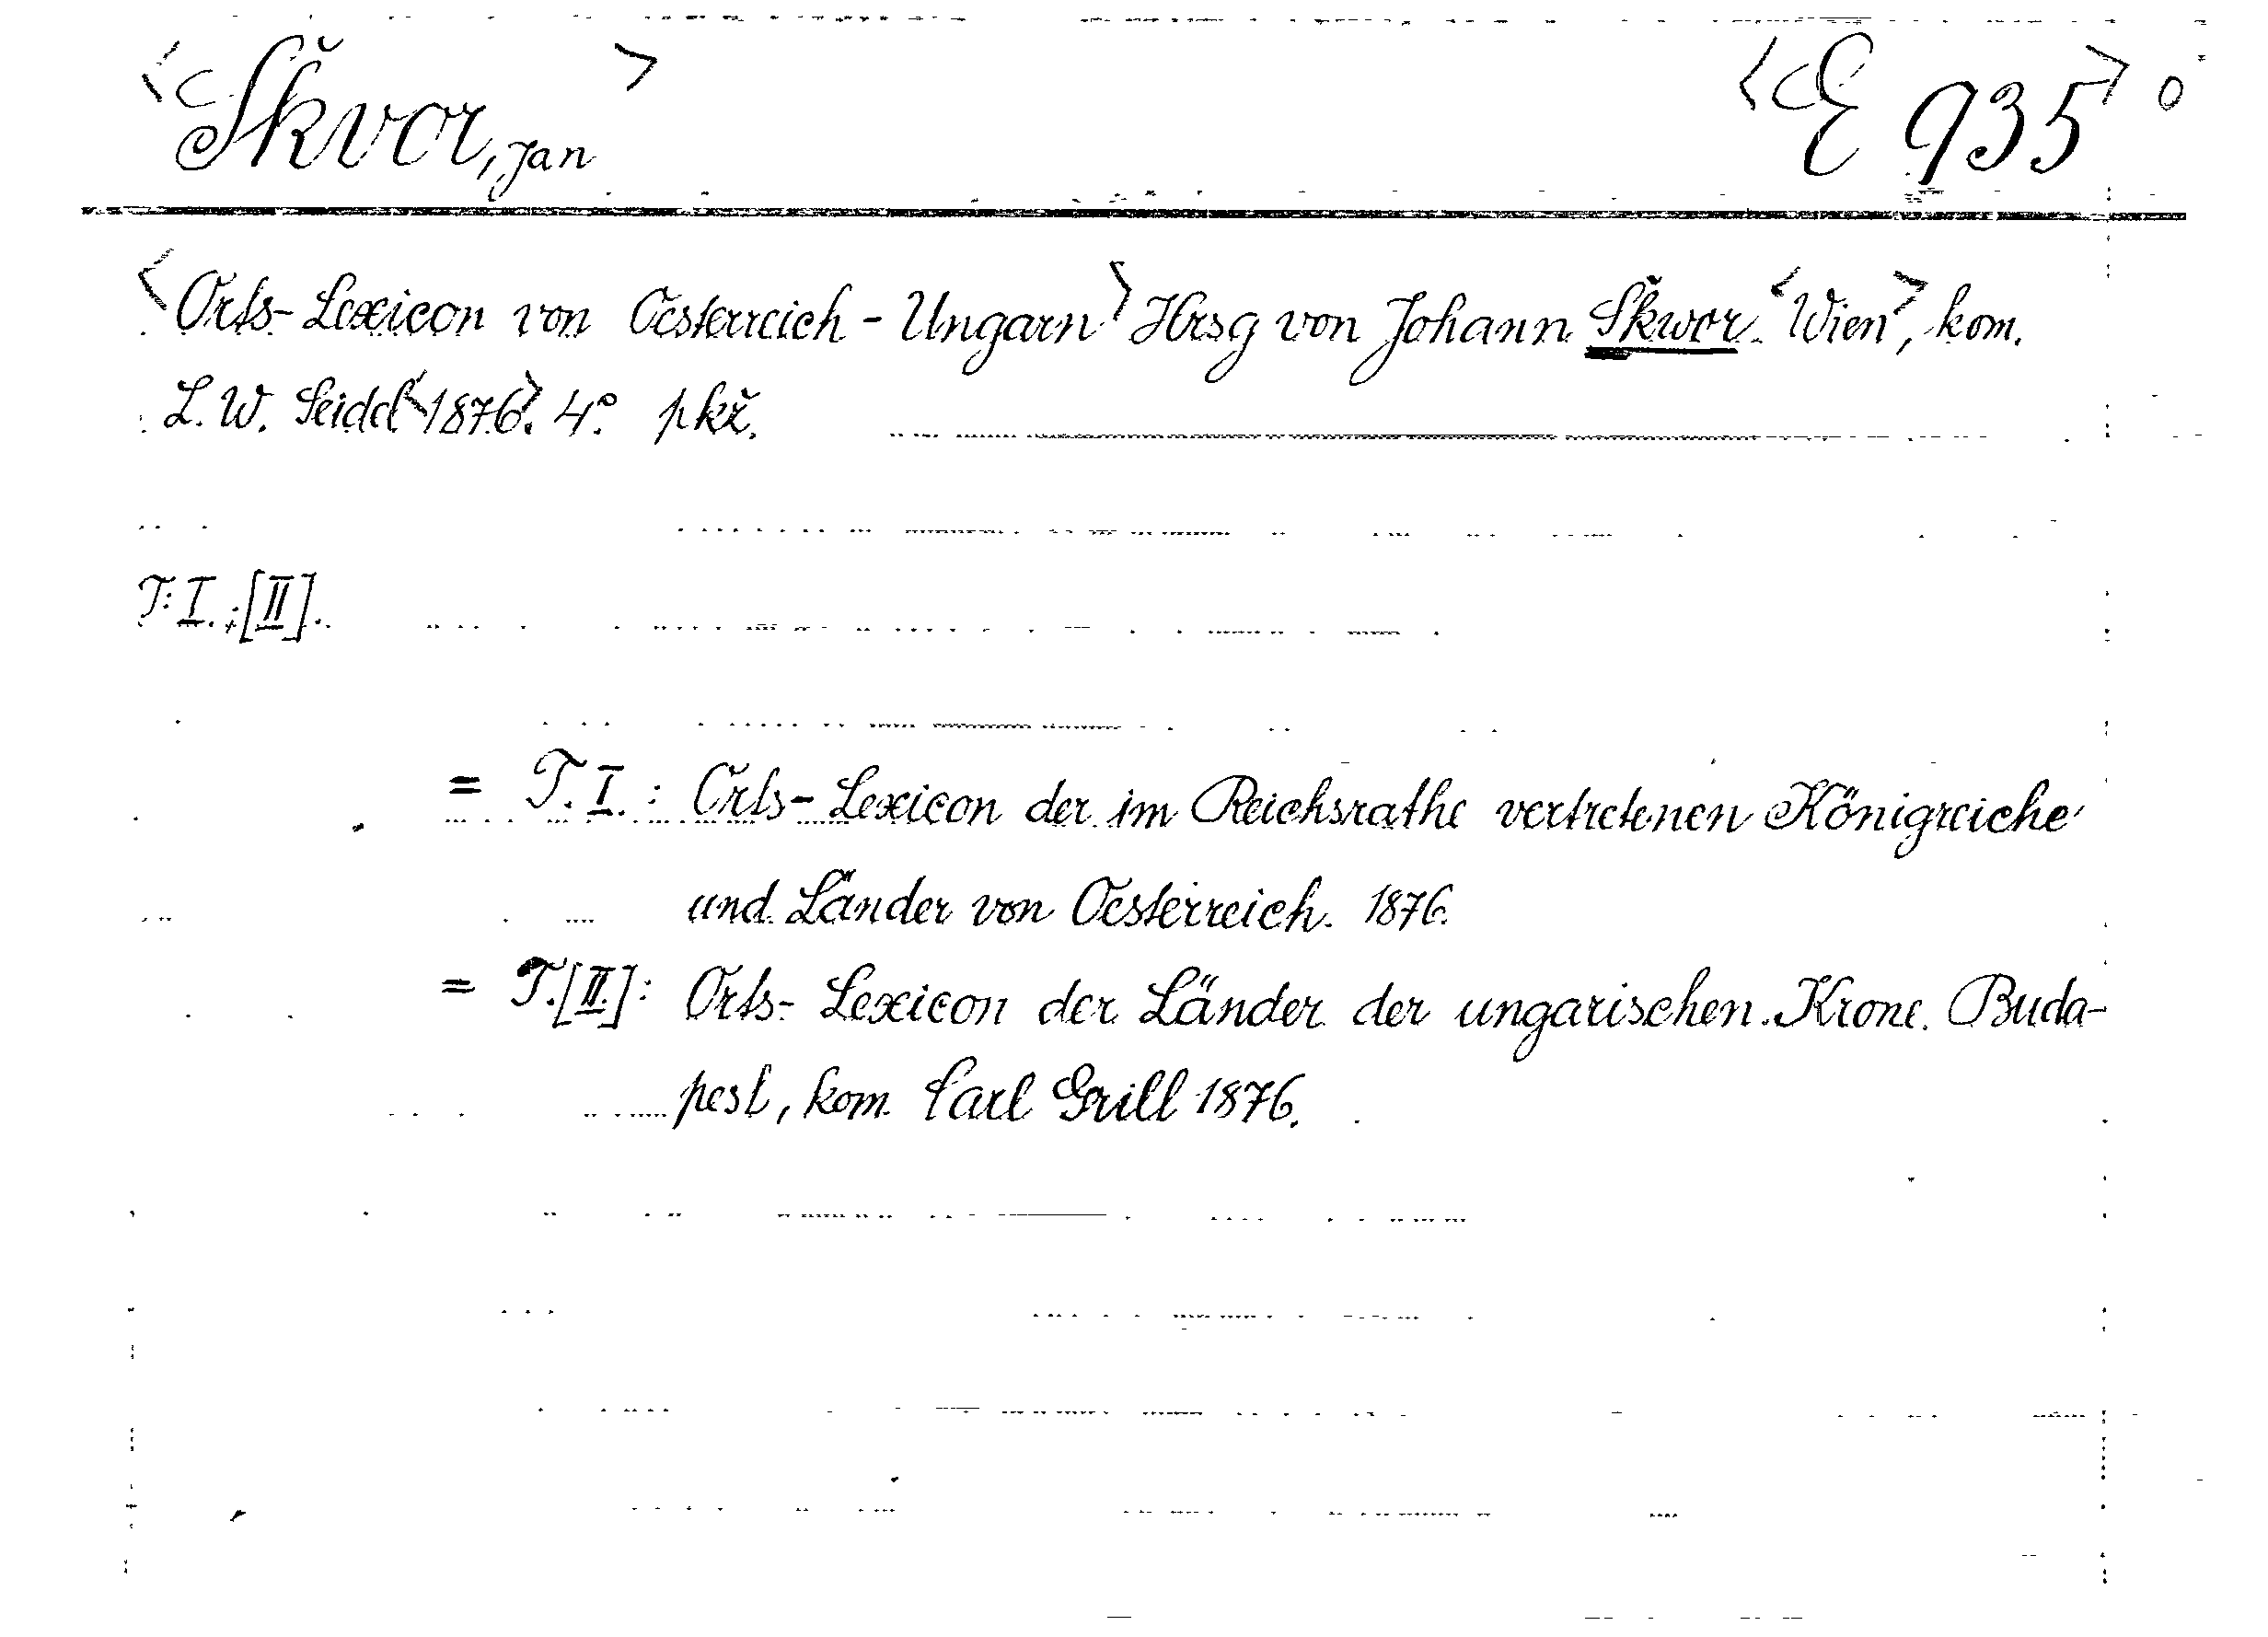 <Škvor, Jan> <E 935> o
<Orts-Lexicon von Oesterreich-Ungarn> Hrsg von Johann Škwor. <Wien>, kom.
L. W. Seidel <1876>. 4° pkž.
T. I.; [II].
= T. I.: Orts-Lexicon der im Reichsrathe vertretenen Königreiche
und Länder von Oesterreich. 1876.
= T. [II.]: Orts-Lexicon der Länder der ungarischen Krone. Buda-
pest, kom. Carl Grill 1876.